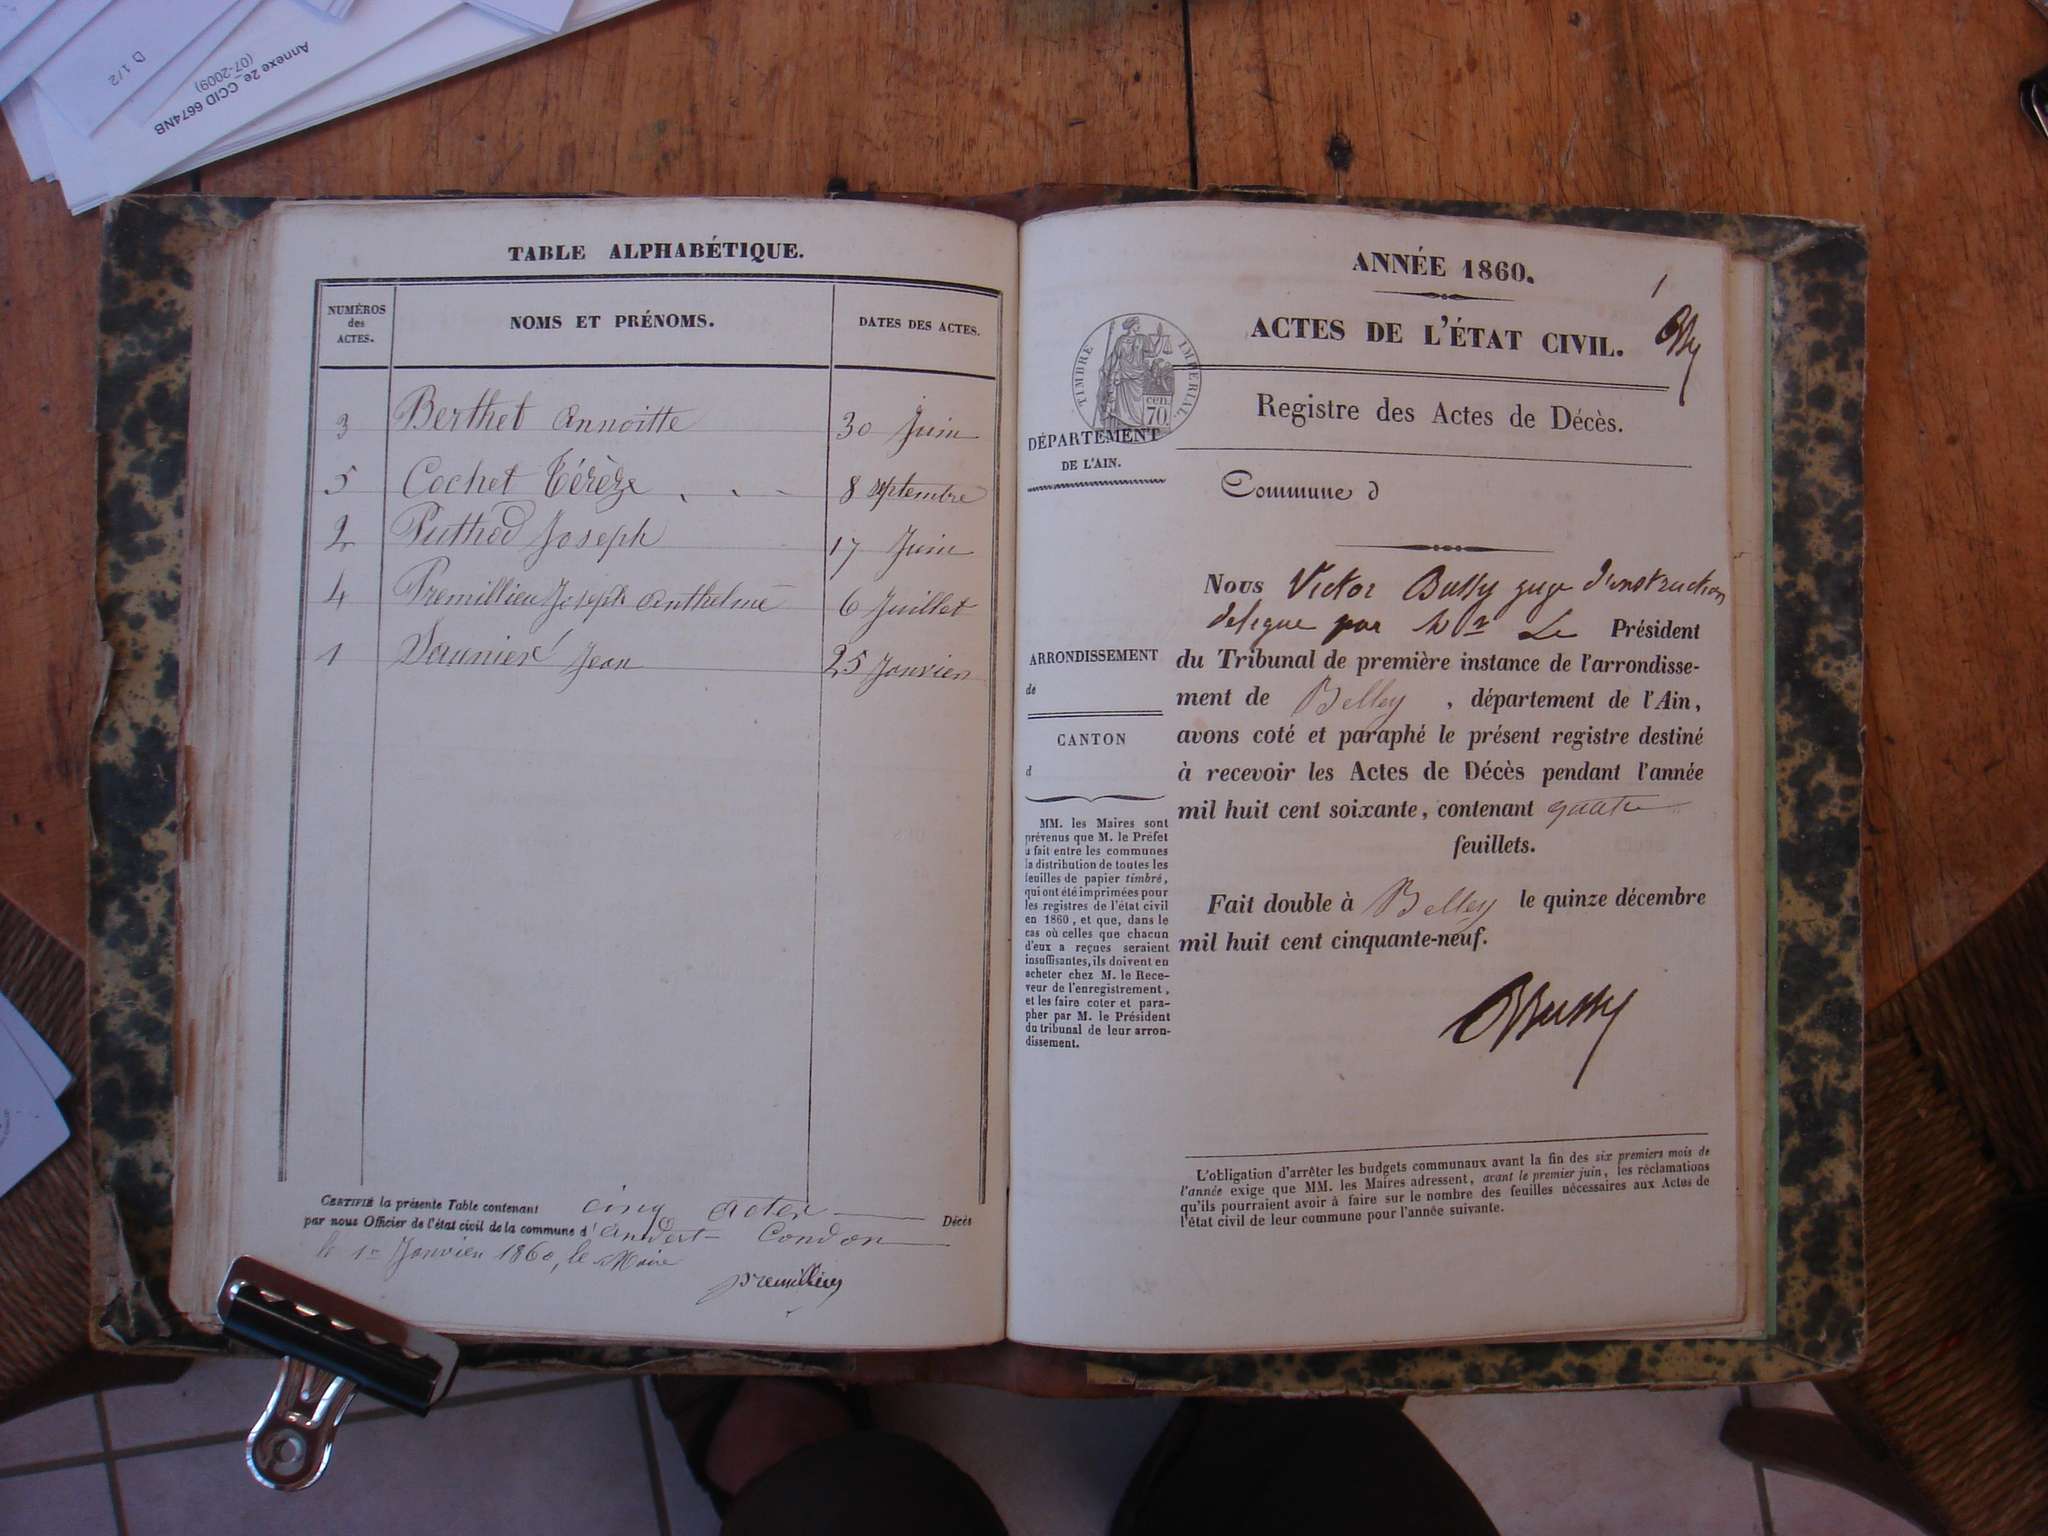 Annexe 2e_ CCID 6674NB
(07-2009)
D 1/2
TABLE ALPHABÉTIQUE.
NUMÉROS
des
ACTES.
NOMS ET PRÉNOMS.
DATES DES ACTES.
3 Berthet Annoitte 30 Juin
5 Cochet Térèze 8 septembre
2 Puthod Joseph 17 Juin
4 Premillieu Joseph Anthelme 6 Juillet
1 Saunier Jean 25 Janvier
CERTIFIÉ la présente Table contenant cinq actes Décès
par nous Officier de l'état civil de la commune d' andert Condon
le 1er Janvier 1860, le Maire
premillieu
ANNÉE 1860.
1
ACTES DE L'ÉTAT CIVIL.
TIMBRE IMPÉRIAL
cen.
70.
Registre des Actes de Décès.
DÉPARTEMENT
DE L'AIN.
Commune d
ARRONDISSEMENT
de
CANTON
d
MM. les Maires sont
prévenus que M. le Préfet
a fait entre les communes
la distribution de toutes les
feuilles de papier timbré,
qui ont été imprimées pour
les registres de l'état civil
en 1860, et que, dans le
cas où celles que chacun
d'eux a reçues seraient
insuffisantes, ils doivent en
acheter chez M. le Rece-
veur de l'enregistrement,
et les faire coter et para-
pher par M. le Président
du tribunal de leur arron-
dissement.
Nous Victor Bussy juge d'instruction
delegue par Mr Le Président
du Tribunal de première instance de l'arrondisse-
ment de Belley, département de l'Ain,
avons coté et paraphé le présent registre destiné
à recevoir les Actes de Décès pendant l'année
mil huit cent soixante, contenant quatre
feuillets.
Fait double à Belley le quinze décembre
mil huit cent cinquante-neuf.
VBussy
L'obligation d'arrêter les budgets communaux avant la fin des six premiers mois de
l'année exige que MM. les Maires adressent, avant le premier juin, les réclamations
qu'ils pourraient avoir à faire sur le nombre des feuilles nécessaires aux Actes de
l'état civil de leur commune pour l'année suivante.